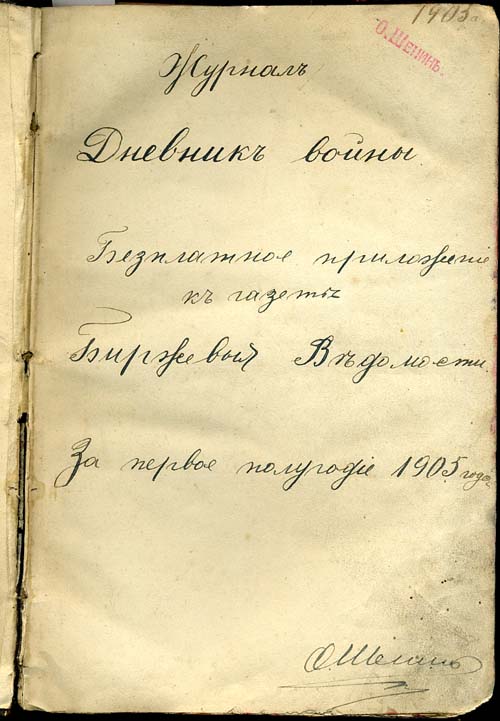 1905г.
О. Шенинъ.
Журналъ
Дневникъ войны.
Безплатное приложенiе
къ газетѣ
Биржевыя Вѣдомости.
За первое полугодiе 1905 года
О. Шенинъ